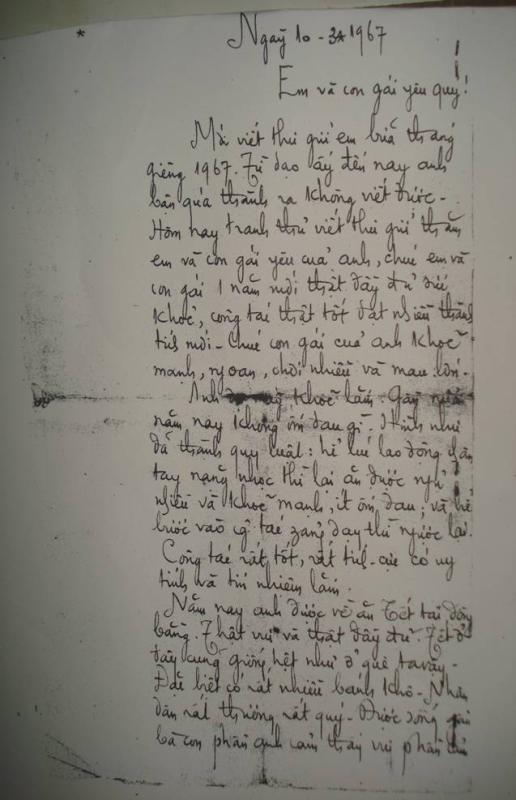 Ngaỳ 10 - 3 1967
Em và con gái yêu quý!
Mới viết thư gửi em bữa tháng
giêng 1967. Từ dạo ấy đến nay anh
bận quá thành ra không viết được -
Hôm nay tranh thủ viết thư gửi thăm
em và con gái yêu của anh, chúc em và
con gái 1 năm mới thật đầy đủ sức
khoẻ, công tác thật tốt đạt nhiều thành
tích mới - Chúc con gái của anh khoẻ
mạnh, ngoan, chơi nhiều và mau lớn.
Anh khoẻ lắm. Gần nửa
năm nay không ốm đau gì. Hình như
đã thành quy luật: hễ lúc lao động chân
tay nặng nhọc thì lại ăn được ngủ
nhiều và khoẻ mạnh, ít ốm đau, và hễ
bước vào công tác giảng dạy thì ngược lại.
Công tác rất tốt, rất tích cực có uy
tính và tín nhiệm lắm.
Năm nay anh được về ăn Tết tại đồng
bằng. Thật vui và thật đầy đủ. Tết ở
đây cũng giống hệt như ở quê ta vậy -
Đặc biệt có rất nhiều bánh khô - Nhân
dân rất thương rất quý. Được sống gần
bà con phần anh cảm thấy vui phấn